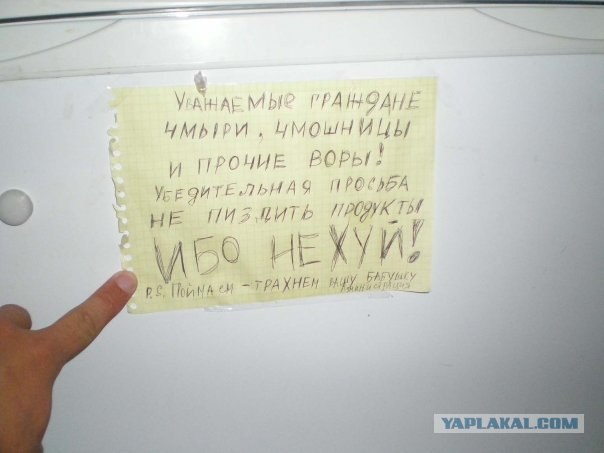 УВАЖАЕМЫЕ ГРАЖДАНЕ
ЧМЫРИ, ЧМОШНИЦЫ
И ПРОЧИЕ ВОРЫ!
УБЕДИТЕЛЬНАЯ ПРОСЬБА
НЕ ПИЗДИТЬ ПРОДУКТЫ
ИБО НЕХУЙ!
P.S. ПОЙМАЕМ - ТРАХНЕМ ВАШУ БАБУШКУ
АДМИНИСТРАЦИЯ
YAPLAKAL.COM